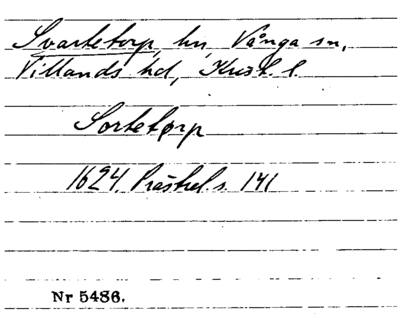 Svartetorp, hn, Vånga sn,
Villands hd, Krist. l.
Sortetorp
1624. Prästrel. s. 141
Nr 5486.